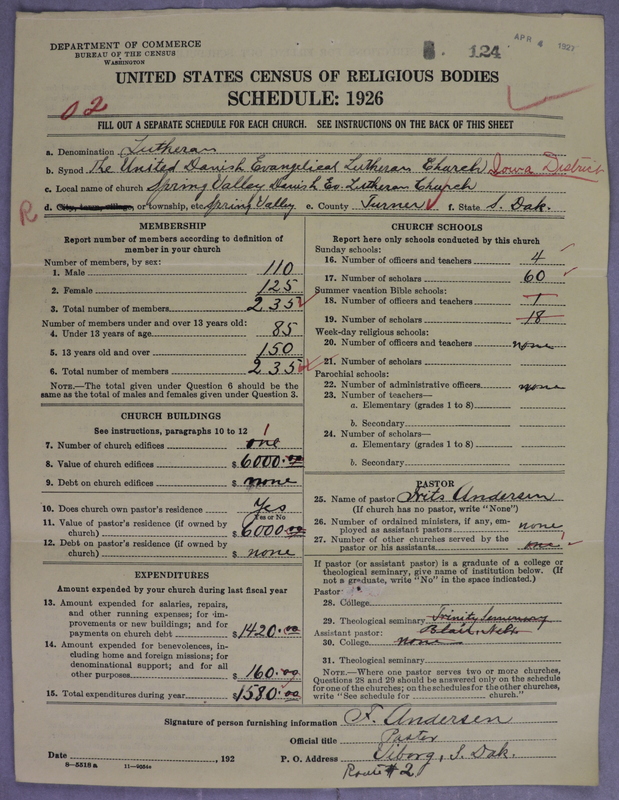 DEPARTMENT OF COMMERCE
BUREAU OF THE CENSUS
WASHINGTON
124
APR 4 1927
UNITED STATES CENSUS OF RELIGIOUS BODIES
SCHEDULE: 1926
02
FILL OUT A SEPARATE SCHEDULE FOR EACH CHURCH. SEE INSTRUCTIONS ON THE BACK OF THIS SHEET
a. Denomination Lutheran
b. Synod The United Danish Evangelical Lutheran Church Iowa District
c. Local name of church Spring Valley Danish Ev. Lutheran Church
R
d. City, town, village, or township, etc. Spring Valley e. County Turner f. State S. Dak.
MEMBERSHIP
Report number of members according to definition of
member in your church
Number of members, by sex:
1. Male 110
2. Female 125
3. Total number of members 235
Number of members under and over 13 years old:
4. Under 13 years of age 85
5. 13 years old and over 150
6. Total number of members 235
NOTE.—The total given under Question 6 should be the
same as the total of males and females given under Question 3.
CHURCH BUILDINGS
See instructions, paragraphs 10 to 12
7. Number of church edifices one 1
8. Value of church edifices $6000.00
9. Debt on church edifices $ none
10. Does church own pastor's residence Yes
Yes or No
11. Value of pastor's residence (if owned by
church) $6000.00
12. Debt on pastor's residence (if owned by
church) $ none
EXPENDITURES
Amount expended by your church during last fiscal year
13. Amount expended for salaries, repairs,
and other running expenses; for im-
provements or new buildings; and for
payments on church debt $1420.00
14. Amount expended for benevolences, in-
cluding home and foreign missions; for
denominational support; and for all
other purposes $160.00
15. Total expenditures during year $1580.00
CHURCH SCHOOLS
Report here only schools conducted by this church
Sunday schools:
16. Number of officers and teachers 4
17. Number of scholars 60
Summer vacation Bible schools:
18. Number of officers and teachers 1
19. Number of scholars 18
Week-day religious schools:
20. Number of officers and teachers none
21. Number of scholars
Parochial schools:
22. Number of administrative officers none
23. Number of teachers—
a. Elementary (grades 1 to 8)
b. Secondary
24. Number of scholars—
a. Elementary (grades 1 to 8)
b. Secondary
PASTOR
25. Name of pastor Frits Andersen
(If church has no pastor, write "None")
26. Number of ordained ministers, if any, em-
ployed as assistant pastors none
27. Number of other churches served by the
pastor or his assistants one 1
If pastor (or assistant pastor) is a graduate of a college or
theological seminary, give name of institution below. (If
not a graduate, write "No" in the space indicated.)
Pastor:
28. College
29. Theological seminary Trinity Seminary
Assistant pastor: Blair, Nebr.
30. College none
31. Theological seminary
NOTE.—Where one pastor serves two or more churches,
Questions 28 and 29 should be answered only on the schedule
for one of the churches; on the schedules for the other churches,
write "See schedule for church."
Signature of person furnishing information F. Andersen
Official title Pastor
Date , 192 P. O. Address Viborg, S. Dak.
Route #2
8—5318 a